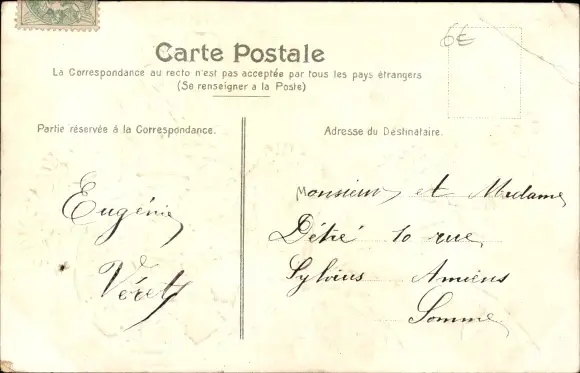 6€
Carte Postale
La Correspondance au recto n'est pas acceptée par tous les pays étrangers
(Se renseigner a la Poste)
Partie réservée à la Correspondance.
Adresse du Destinataire.
Eugénie
Véret
Monsieur et Madame
Détré 10 rue
Sylvius Amiens
Somme